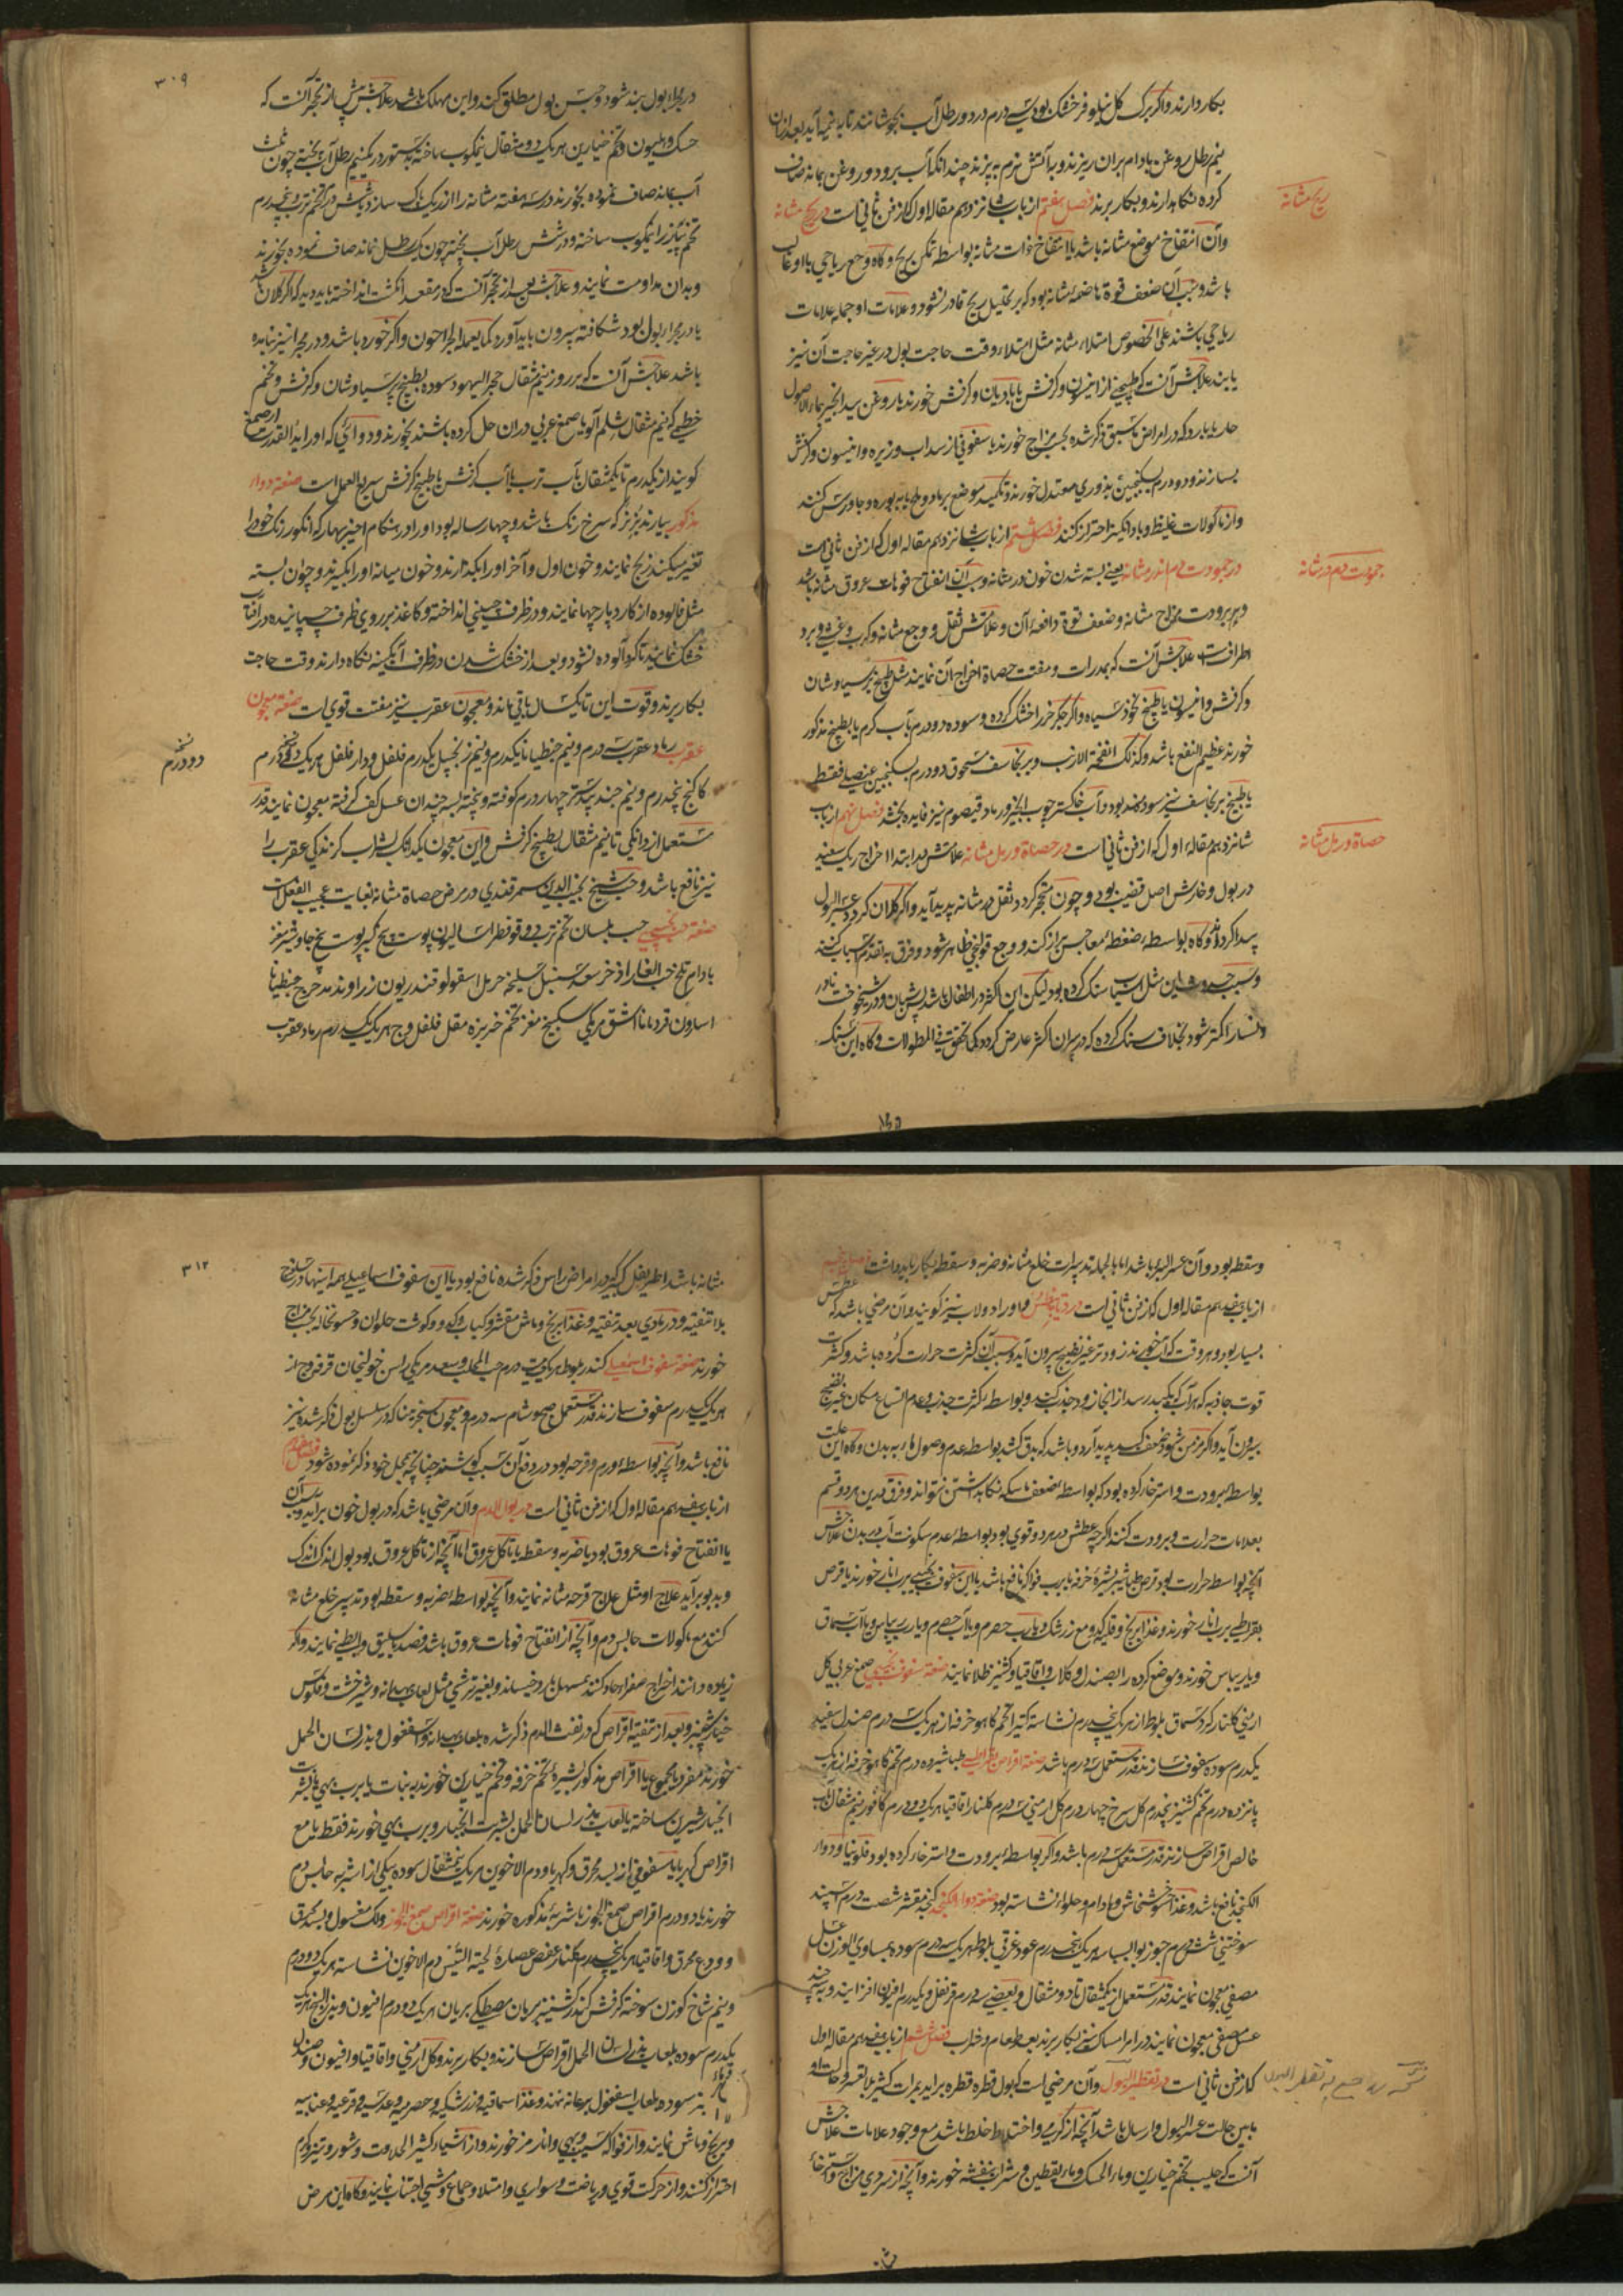 بکار دارند و اگر برک کل نیلوفر خشک بود سی درم در دو رطل آب بجوشانند تا به نیمه آید بعد ازان
نیم رطل روغن بادام بران ریزند و بآتش نرم به پزند چندانکه آب برود و روغن بماند صاف
کرده نکاهدارند و بکار برند فصل هفتم از باب شانزدهم مقاله اول که از فن ثانی است در ریح مثانه
ریح مثانه
وآن انتفاخ موضع مثانه باشد یا انتفاخ ذات مثانه بواسطه تمکن ریح و کاه وجع ریاحی با او
باشد و سبب آن ضعف قوة هاضمه مثانه بود که بر تحلیل ریح قادر نشود و علامات او جمله علامات
ریاحی باشند علی الخصوص امتلاء مثانه مثل امتلاء وقت حاجت بول در غیر حاجت آن نیز
یابند علاجش آنست که طبیخی از انیسون و کرفش یا بادیان و کرفش خورند با روغن بید انجیر بماء الاصول
حار یا بارد که در امراض ماسبق ذکر شده بحسب مزاج خورند یا سفوفی از سداب و زیره و انیسون و کرفش
بسازند و دو درم بسکنجبین بذوری معتدل خورند و تکمید موضع برماد و ملح یا به بوره و جاورس کنند
واز ماکولات غلیظ و باد انکیز احتراز کنند فصل هشتم از باب شانزدهم مقاله اول که از فن ثانی است
در جمودت دم اندر مثانه یعنی بسته شدن خون در مثانه و سبب آن انفتاح فوهات عروق مثانه باشد
جمودت دم در مثانه
دیکر برودت مزاج مثانه و ضعف قوة دافعه آن و علامتش ثقل و وجع مثانه و کرب و غشی و برد
اطراف است علاجش آنست که بمدرات و مفتت حصاة اخراج آن نمایند مثل طبیخ پرسیاوشان
وکرفش و انیسون یا طبیخ نخود سیاه و اکر جکر خر را خشک کرده و سوده دو درم بآب کرم یا بطبیخ مذکور
خورند عظیم النفع باشد و کذلک انفحة الارنب و برنجاسف مسحوق دو درم بسکنجبین عنصلی فقط
یا طبیخ برنجاسف نیز سودمند بود و آب خاکستر چوب انجیر و رماد قیصوم نیز فایده بخشد فصل نهم از باب
شانزدهم مقاله اول که از فن ثانی است در حصاة و رمل مثانه علامتش در ابتدا اخراج ریک سفید
حصاة و رمل مثانه
در بول و خارش اصل قضیب بود و چون متحجر کردد ثقل در مثانه پدید آید و اکر کلان کردد عسر البول
پیدا کردد و کاه بواسطه ضغطه معا حبس براز کند و وجع قولنجی ظاهر شود و فرق به تقدم اسباب کنند
و سبب حدوث این مثل اسباب سنک کرده بود لیکن این اکثر در اطفال باشد و در شیخوخت نادر
ونسا را کمتر شود بخلاف سنک کرده که در پیران اکثر عارض کردد کما تحقق فی المطولات و کاه این سنک
۳۰۹
در مجراء بول بند شود و حبس بول مطلق کند و این مهلک باشد علاجش پیش از تحجر آنست که
حسک و هلیون و تخم خیارین هر یک دو مثقال نیمکوب ساخته بدستور در یکنیم رطل آب پخته چون ثلث
آب بماند صاف نموده بخورند در سه هفته مثانه را از ریک پاک سازد و شش درم تخم ترب و پنجدرم
تخم پیاز را نیمکوب ساخته در شش رطل آب پخته چون یک رطل بماند صاف نموده بخورند
وبدان مداومت نمایند و علاجش بعد از تحجر آنست که در مقعد انکشت انداخته باید دید که اکر کلان باشد
یا در مجراء بول بود شکافته بیرون باید آورد کما یعمله الجراحون و اکر خورد باشد و در مجرا نیز نبامده
باشد علاجش آنست که هر روز نیم مثقال حجر الیهود سوده بطبیخ پرسیاوشان و کرفش و تخم
خطمی که نیم مثقال شلم آلو یا صمغ عربی دران حل کرده باشند بخورند و دوائی که او را ید القدرت
کویند از یکدرم تا یکمثقال بآب ترب یا آب کرفش یا طبیخ کرفش سریع العمل است صفة دواء
مذکور بیارند بز نر که سرخ رنک باشد و چهار ساله بود او را در هنکام اخیر بهار که انکور رنک خود را
تغیر میکند ذبح نمایند و خون اول و آخر او را بکذارند و خون میانه او را بکیرند و چون بسته
مثل فالوده از کارد پارچها نمایند و در ظرف چینی انداخته و کاغذ بر روی ظرف چسپانیده در آفتاب
خشک نمایند تا کرد آلوده نشود و بعد از خشک شدن در ظرف آبکینه نکاه دارند وقت حاجت
بکار برند و قوت این تا یکسال باقی ماند و معجون عقرب نیز مفتت قوی است صفة معجون
عقرب رماد عقرب سه درم و نیم جنطیانا یکدرم و نیم زنجبیل یکدرم فلفل و دار فلفل هر یک دو درم
نسخه دو درم
کاکنج پنجدرم و نیم جندبیدستر چهار درم کوفته و بیخته بسه چندان عسل کف کرفته معجون نمایند قدر
مستعمل از دانکی تا نیم مثقال بطبیخ کرفش و این معجون یکدانک بشراب کزندکی عقرب را
نیز نافع باشد و حب شیخ نجیب الدین سمرقندی در مرض حصاة مثانه بغایت عجیب الفعل است
صفة حب حب بلسان تخم ترب دوقو فطراسالیون پوست بیخ کبر پوست بیخ جاوشیر مغز
بادام تلخ حب الغار اذخر سعد سنبل سلیخه حرمل اسقولوقندریون زراوند مدحرج جنطیانا
اسارون قردمانا اشق مرمکی سکبینج مغز تخم خربزه مقل فلفل وج هر یک یکدرم رماد عقرب
وسقطه بود و آن عسر البرء باشد اما بالجمله تدبیرات خلع مثانه و ضربه و سقطه بکار باید داشت فصل پنجم
از باب هفدهم مقاله اول که از فن ثانی است در دیابیطس و او را دولاب نیز کویند و آن مرضی باشد که عطش
بسیار بود و هر وقت که آب خورند زود تر غیر نضیج بیرون آید و سبب آن کثرت حرارت کرده باشد و کثرت
قوت جاذبه که هر آب که بکبد رسد از انجا زود جذب کند و بواسطه کثرت جذب و عدم اتساع مکان غیر نضیج
بیرون آید و اکر مزمن شود ضعف کبد پدید آرد و باشد که بدق کشد بواسطه عدم وصول ماء به بدن و کاه این علت
بواسطه برودت و استرخاء کرده بود که بواسطه ضعف ماسکه نکاه داشتن نتواند و فرق بدین هر دو قسم
بعلامات حرارت و برودت کنند اکرچه عطش در هر دو قوی بود بواسطه عدم سکونت آب در بدن علاجش
آنچه بواسطه حرارت بود قرص طباشیر بشیره خرفه یا برب فواکه نافع باشد یا این سفوف نجیبی برب انار خورند یا قرص
بقراطی برب انار خورند و غذا برنج و قلیه کدو مع زرشک و یا رب حصرم و یا آب حصرم و یا رب ریباس و یا آب سماق
ویا ریباس خورند و موضع کرده را بصندل و کلاب و اقاقیا و کشنیز طلا نمایند صفة سفوف نجیبی صمغ عربی کل
ارمنی کلنار کرد سماق بلوط از هر یک پنجدرم نشاسته کتیرا تخم کاهو خرفه از هر یک سه درم صندل سفید
یکدرم سوده سفوف سازند قدر مستعمل سه درم باشد صفة اقراص بقراطی طباشیر ده درم تخم کاهو خرفه از هر یک
پانزده درم تخم کشنیز پنجدرم کل سرخ چهار درم کل ارمنی سه درم کلنار اقاقیا هر یک دو درم کافور نیم مثقال بآب
خالص اقراص سازند قدر مستعمل سه درم باشد و اکر بواسطه برودت و استرخاء کرده بود فلونیا و دواء
الکنجد نافع باشد و غذا خشخاش و بادام و حلواء نشاسته بود صفة دواء الکنجد کنجد مقشر شصت درم اسپند
سوختنی شش درم جوز بوا بسباسه هر یک پنجدرم عود غرقی بلوط هر یک سه درم سوده بمساوی الوزن عسل
مصفی معجون نمایند قدر مستعمل از یکمثقال تا دو مثقال و بعضی سه درم قرنفل و یکدرم افیون افزایند و بسه چند
عسل مصفی معجون نمایند و در امر امساک منی بکار برند بعد طعام و شراب فصل ششم از باب هفدهم مقاله اول
که از فن ثانی است در تقطیر البول و آن مرضی است که بول قطره قطره براید بمرات کثیر بلا تعسر و حالت او
مابین حالت عسر البول و ارسال باشد آنچه از کرمی و اختلاط خلط باشد مع وجود علامات علاجش
آنست که حلیب تخم خیارین و ماء الحسک و ماء یقطین و شراب بنفشه خورند و آنچه از سردی مزاج و استرخاء
۳۱۲
مثانه باشد اطریفل کبیر در امراض راس ذکر شده نافع بود یا این سفوف اسماعیلی همه اینها در
بلا تنقیه و در مادی بعد تنقیه و غذا برنج و ماش مقشر و کباب و کدو و کوشت حلوان و خسو نخاله بحسب مزاج
خورند صفة سفوف اسمعیلی کندر بلوط هر یک بیست درم حب المحلب و سعد مرمکی راسن خولنجان قرفه وج از
هر یک یکدرم سفوف سازند قدر مستعمل صبح و شام سه درم و معجون سنجرنیا که در سلسل بول ذکر شده نیز
نافع باشد و آنچه بواسطه ورم و قرحه بود در دفع آن سبب کوشند چنانچه بمحل خود ذکر نموده شود فصل هفتم
از باب هفدهم مقاله اول که از فن ثانی است در بول الدم و آن مرضی باشد که در بول خون براید و سبب آن
یا انفتاح فوهات عروق بود یا ضربه و سقطه یا تاکل عروق اما آنچه از تاکل عروق بود بول اندک اندک
و بدبو براید علاج او مثل علاج قرحه مثانه نمایند و آنچه بواسطه ضربه و سقطه بود تدبیر خلع مثانه
کنند مع ماکولات حابس دم و آنچه از انفتاح فوهات عروق باشد فصد باسلیق و ابطی نمایند و اکر
زیاده دانند اخراج صفراء حاد کنند بمسهل بارد خیسانده بغیر ترشی مثل لعاب بهدانه و شیرخشت و فلوس
خیارشنبر و بعد از تنقیه اقراص که در نفث الدم ذکر شده بلعاب بهدانه و اسپغول و بذر لسان الحمل
خورند مفرد یا مجموع یا اقراص مذکور بشیره تخم خرفه و تخم خیارین خورند به نبات یا برب بهی یا بشربت
انجبار شیرین ساخته یا لعاب بذر لسان الحمل بشربت انجبار و برب بهی خورند فقط یا مع
اقراص کهربا یا سفوفی از بسد محرق و کهربا و دم الاخوین هر یک نیمثقال سوده بیکی از اشربه حابس دم
خورند یا دو درم اقراص صمغ الجوز باشربه مذکوره خورند صفة اقراص صمغ الجوز و لک مغسول و بسد محرق
وودع محرق و اقاقیا هر یک پنجدرم کلنار عفص عصاره لحیة التیس دم الاخوین نشاسته هر یک دو درم
ونیم شاخ کوزن سوخته کرفش کندر کشنیز بریان مصطکی بریان هر یک دو درم افیون و بذر البنج هر یک
یکدرم سوده بلعاب بذر لسان الحمل اقراص سازند و بکار برند و کل ارمنی و اقاقیا و افیون و صندل
سوده بلعاب اسپغول بر عانه نهند و غذا سماقیه و زرشکیه و حصرمیه و عدسیه و قرعیه و عنابیه
وبرنج و ماش نمایند و از فواکه سیب و بهی و انار مز خورند و از اشیاء کثیر الحلاوت و شور و تیز و کرم
احتراز کنند و از حرکت قوی و ریاضت و سواری و امتلا و جماع و مشی اجتناب نمایند و کاه این مرض